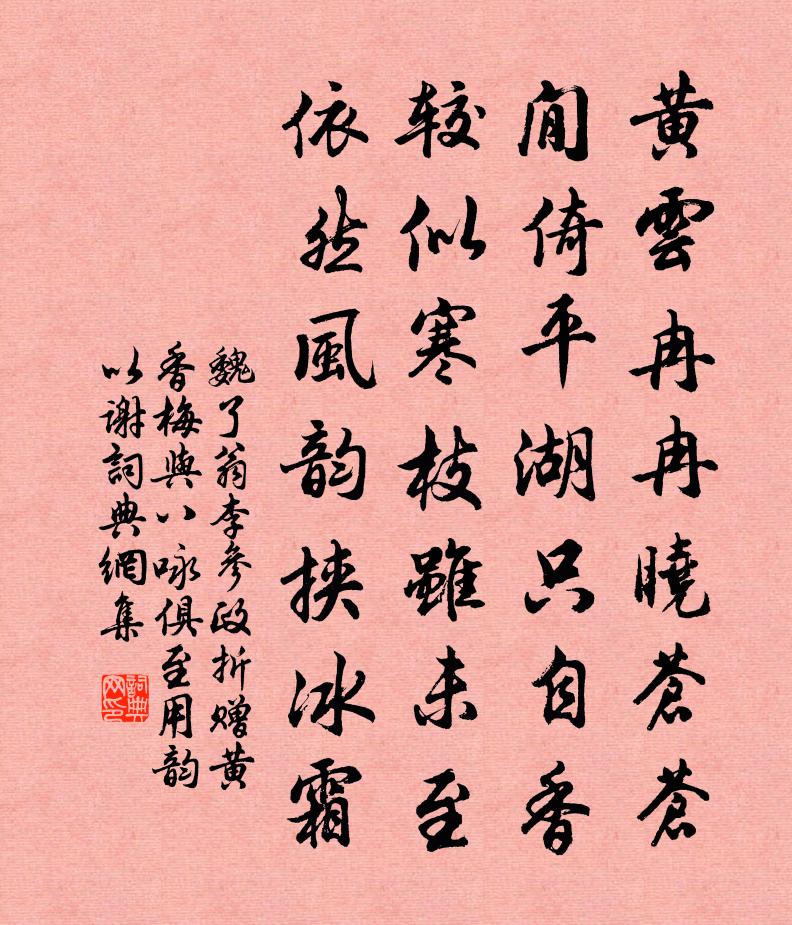 黄雲冉冉曉蒼蒼
閒倚平湖只自香
较似寒枝雖未至
依然風韵挾冰霜
魏了翁李參政折赠黄
香梅與八咏俱至用韵
以谢詞典網集
詞典网印